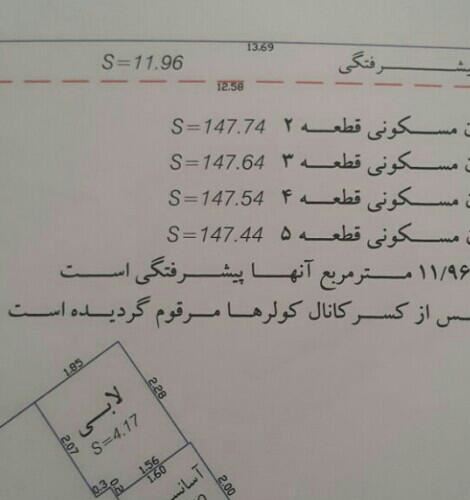 13.69
پیشـــرفتگی S=11.96
12.58
مسکونی قطعه ۲ S=147.74
مسکونی قطعه ۳ S=147.64
مسکونی قطعه ۴ S=147.54
مسکونی قطعه ۵ S=147.44
۱۱/۹۶ مترمربع آنها پیشرفتگی است
پس از کسر کانال کولرها مرقوم گردیده است
1.85
2.28
لابی
S=4.17
2.07
1.56
1.60
0.3
2.00